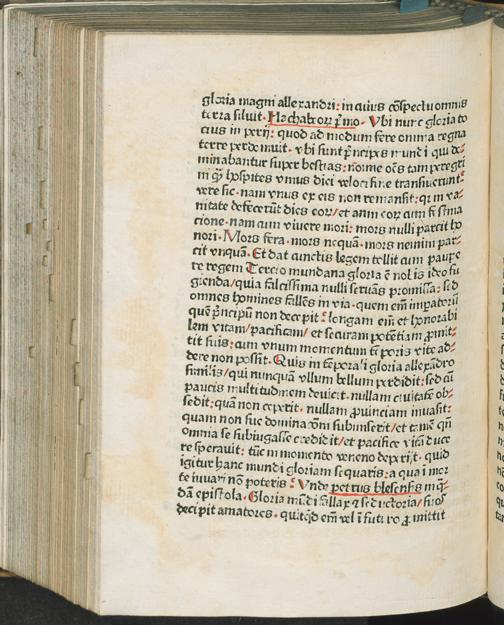 gloria magni allexandri: in cuius cōspectu omnis
terra siluit. Machabeoꝝ pͥmo. Vbi nunc gloria to
cius imperij: quod ad modum fere omnia regna
terre perdomuit. vbi sunt pͥncipes mundi qui do⸗
minabantur super bestias: nōnne oēs tamꝙ peregri
ni et hospites vnius diei velocissime transiuerunt⸗
vere sic. nam vnus ex eis non remansit: qꝛ in va⸗
nitate defecerūt dies eoꝝ/ et anni eoꝝ cum festina
cione. nam cum viuere mori: mors nulli parcit ho
nori. Mors fera. mors nequā. mors nemini par⸗
cit vnquā. Et dat cunctis legem tellit cum paupe
re regem Tercio mundana gloria ē nobis ideo fu
gienda/ quia falcissima nulli seruās promissa: sed
omnes homines fallēs in via. quem eīm imperatorū
quē pͥncipū non decepit: longam eīm et honorabi
lem vitam/ pacificam/ et securam potētiam ꝓmit⸗
tit suis: cum vnum momentum tēporis vite ad⸗
dere non possit. Quis in tēporali gloria allexādro
similis/ qui nunquā vllum bellum perdidit: sed cū
paucis multitudinem deuicit. nullam ciuitatē ob⸗
sedit: quā non cepexit. nullam ꝓuinciam inuasit:
quam non suo dominacōni subiunxerit/ et tamē qn̄
omnia se subiugasse credidit/ et pacifice vitā duce
re sperauit: tūc in momento veneno deperijt. quid
igitur hanc mundi gloriam sequaris: a qua in mor
te iuuari nō poteris: Vnde petrus blesensis in q̄⸗
dā epistola. Gloria mūdi fallax ⁊ seductoria/ suos
decipit amatores. quitqd eīm vel ī futuro ꝓmittit